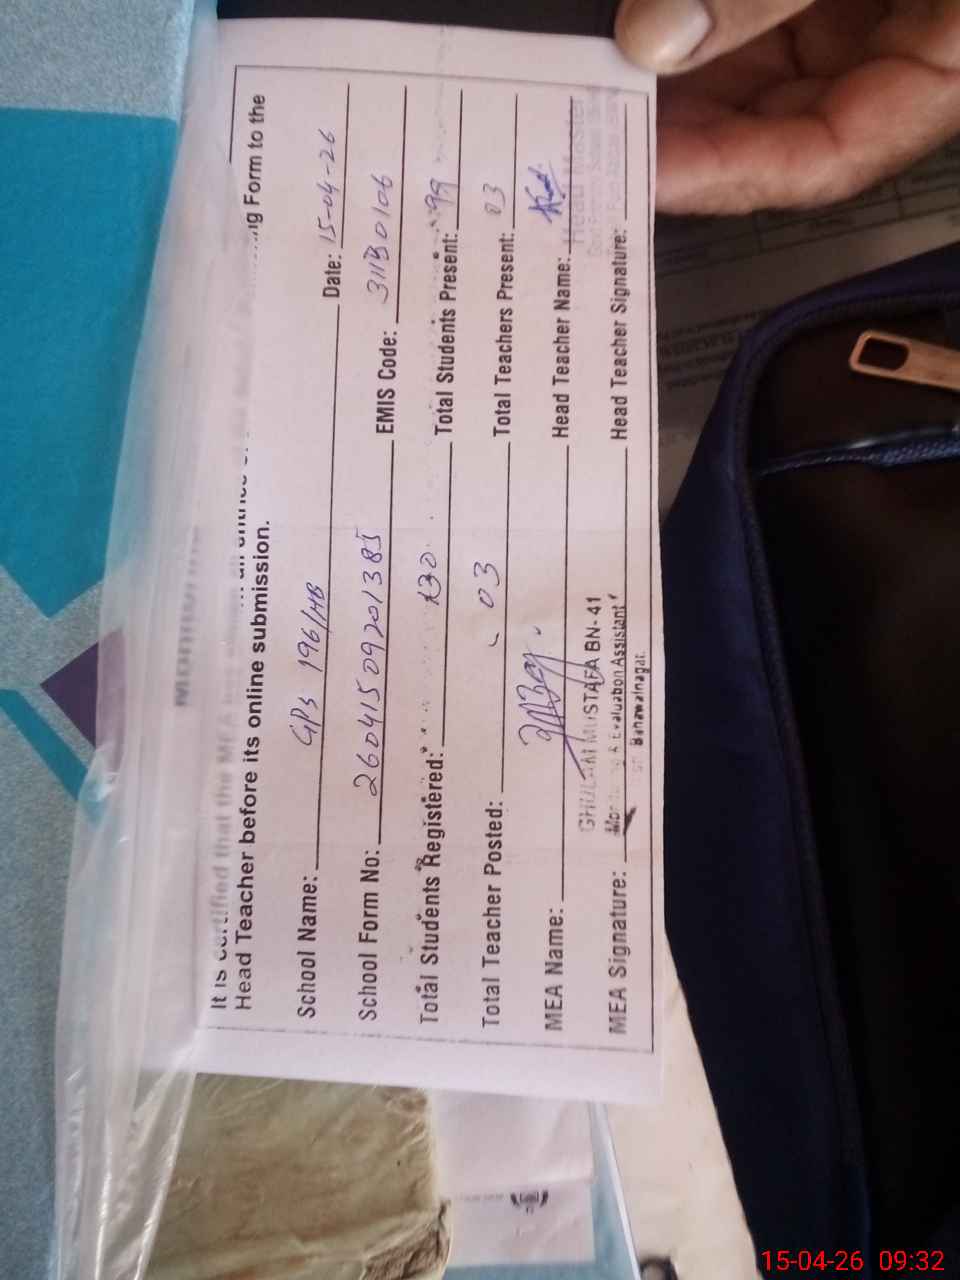 It is certified that the MEA
Form to the
Head Teacher before its online submission.
School Name: GPS 196/HB Date: 15-04-26
School Form No: 26041509201385 EMIS Code: 31130106
Total Students Registered: 130 Total Students Present: 99
Total Teacher Posted: 03 Total Teachers Present: 03
MEA Name: Head Teacher Name:
Head Master
GHULAM MUSTAFA BN-41
Monitoring & Evaluation Assistant
Bahawalnagar.
MEA Signature: Head Teacher Signature:
15-04-26 09:32